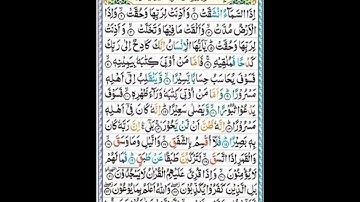 اِذَا السَّمَآءُ انْشَقَّتْ ۙ وَاَذِنَتْ لِرَبِّهَا وَحُقَّتْ ۙ وَاِذَا
الْاَرْضُ مُدَّتْ ۙ وَاَلْقَتْ مَا فِيْهَا وَتَخَلَّتْ ۙ وَاَذِنَتْ
لِرَبِّهَا وَحُقَّتْ ۙ يٰٓاَيُّهَا الْاِنْسَانُ اِنَّكَ كَادِحٌ اِلٰى رَبِّكَ
كَدْحًا فَمُلٰقِيْهِ ۚ فَاَمَّا مَنْ اُوْتِيَ كِتٰبَهٗ بِيَمِيْنِهٖ ۙ
فَسَوْفَ يُحَاسَبُ حِسَابًا يَّسِيْرًا ۙ وَّيَنْقَلِبُ اِلٰٓى اَهْلِهٖ
مَسْرُوْرًا ۙ وَاَمَّا مَنْ اُوْتِيَ كِتٰبَهٗ وَرَآءَ ظَهْرِهٖ ۙ فَسَوْفَ
يَدْعُوْا ثُبُوْرًا ۙ وَّيَصْلٰى سَعِيْرًا ۙ اِنَّهٗ كَانَ فِيْٓ اَهْلِهٖ
مَسْرُوْرًا ۙ اِنَّهٗ ظَنَّ اَنْ لَّنْ يَّحُوْرَ ۚ بَلٰٓى ۚ اِنَّ رَبَّهٗ كَانَ
بِهٖ بَصِيْرًا ۙ فَلَآ اُقْسِمُ بِالشَّفَقِ ۙ وَالَّيْلِ وَمَا وَسَقَ ۙ
وَالْقَمَرِ اِذَا اتَّسَقَ ۙ لَتَرْكَبُنَّ طَبَقًا عَنْ طَبَقٍ ۙ فَمَا لَهُمْ
لَا يُؤْمِنُوْنَ ۙ وَاِذَا قُرِئَ عَلَيْهِمُ الْقُرْاٰنُ لَا يَسْجُدُوْنَ
بَلِ الَّذِيْنَ كَفَرُوْا يُكَذِّبُوْنَ ۖ وَاللّٰهُ اَعْلَمُ بِمَا يُوْعُوْنَ